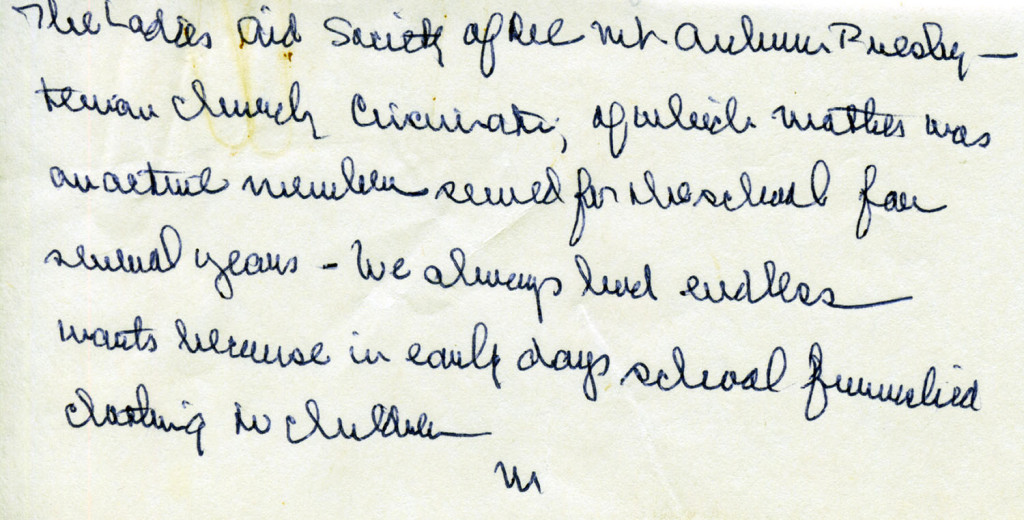 The Ladies Aid Society of the Mt Auburn Presby-
terian Church Cincinnati, of which mother was
an active member sewed for the school for
several years - We always had endless
wants because in early days school furnished
clothing to children
M